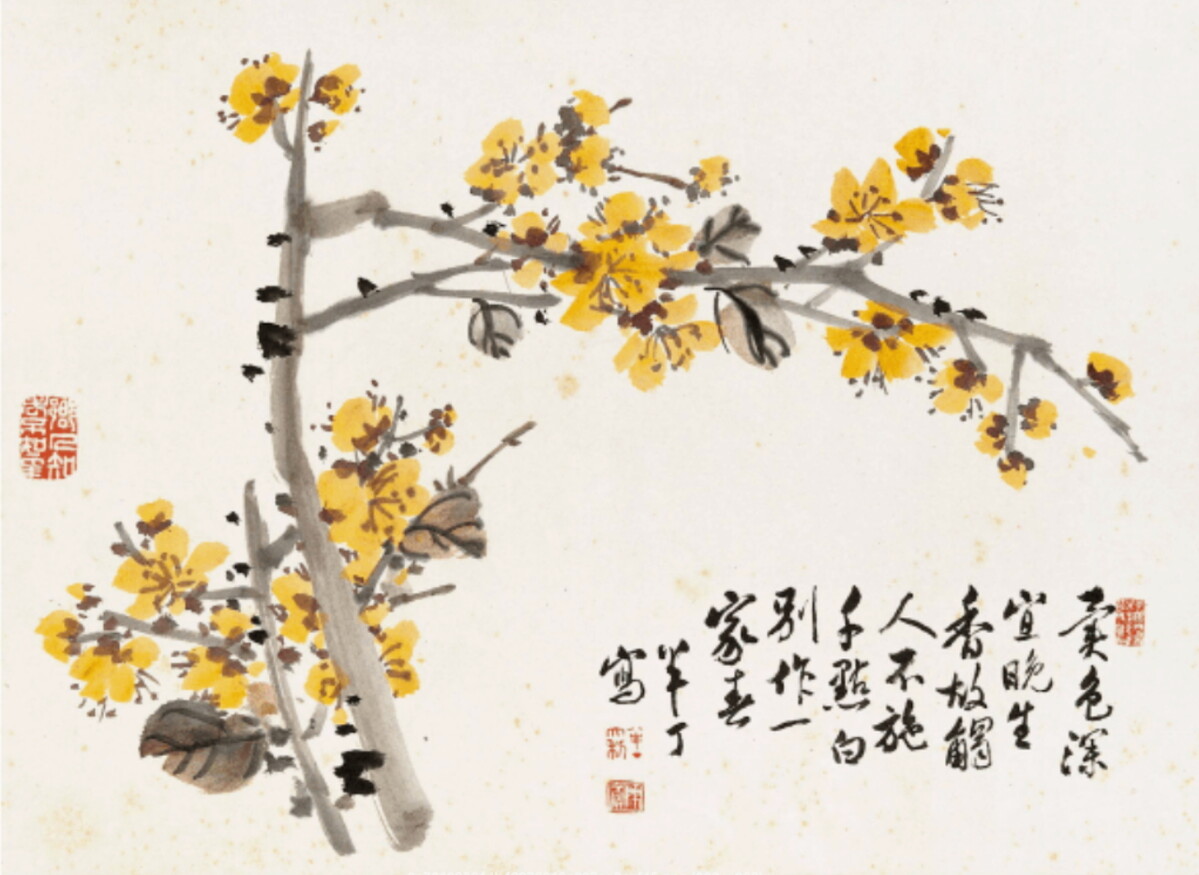 異色深
宜晚生
香故觸
人不施
千點白
別作一
家春
半丁
寫